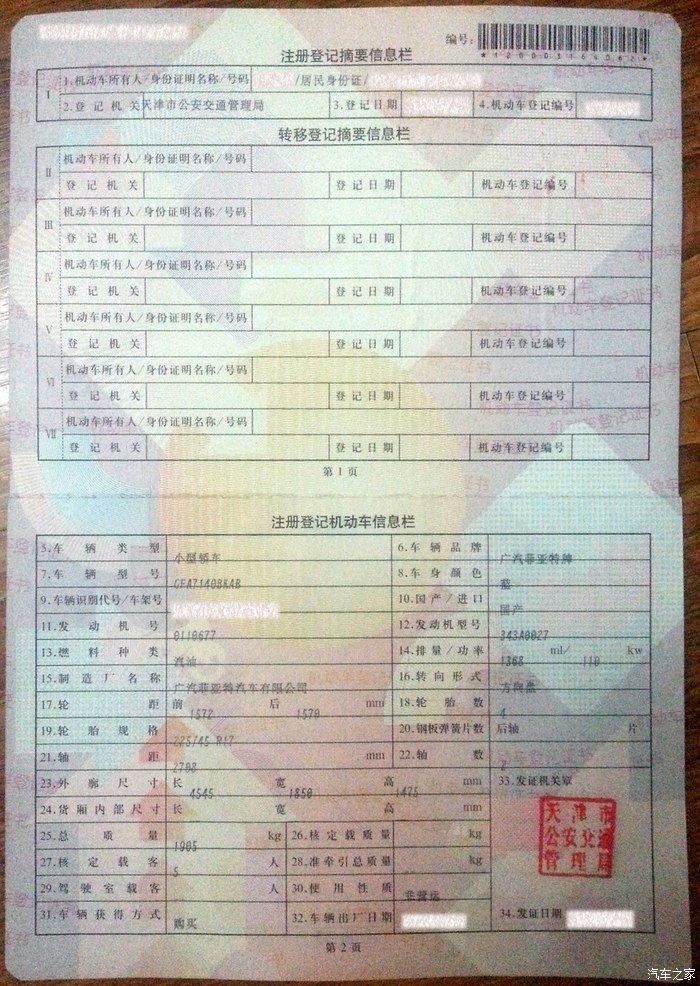 编号:
*120003164062*
注册登记摘要信息栏
Ⅰ 1.机动车所有人/身份证明名称/号码 /居民身份证/
2.登记机关 天津市公安交通管理局 3.登记日期 4.机动车登记编号
转移登记摘要信息栏
Ⅱ 机动车所有人/身份证明名称/号码
登记机关 登记日期 机动车登记编号
Ⅲ 机动车所有人/身份证明名称/号码
登记机关 登记日期 机动车登记编号
Ⅳ 机动车所有人/身份证明名称/号码
登记机关 登记日期 机动车登记编号
Ⅴ 机动车所有人/身份证明名称/号码
登记机关 登记日期 机动车登记编号
Ⅵ 机动车所有人/身份证明名称/号码
登记机关 登记日期 机动车登记编号
Ⅶ 机动车所有人/身份证明名称/号码
登记机关 登记日期 机动车登记编号
第1页
注册登记机动车信息栏
5.车辆类型 小型轿车 6.车辆品牌 广汽菲亚特牌
7.车辆型号 GFA7140BKAB 8.车身颜色 蓝
9.车辆识别代号/车架号 10.国产/进口 国产
11.发动机号 0110677 12.发动机型号 343A0027
13.燃料种类 汽油 14.排量/功率 1368 ml/ 110 kw
15.制造厂名称 广汽菲亚特汽车有限公司 16.转向形式 方向盘
17.轮距 前 1572 后 1570 mm 18.轮胎数 4
19.轮胎规格 225/45 R17 20.钢板弹簧片数 后轴 片
21.轴距 2708 mm 22.轴数 2
23.外廓尺寸 长 4545 宽 1850 高 1475 mm 33.发证机关章
24.货厢内部尺寸 长 宽 高 mm
天津市
公安交通
管理局
25.总质量 1905 kg 26.核定载质量 kg
27.核定载客 5 人 28.准牵引总质量 -- kg
29.驾驶室载客 人 30.使用性质 非营运
31.车辆获得方式 购买 32.车辆出厂日期 34.发证日期
第2页
汽车之家